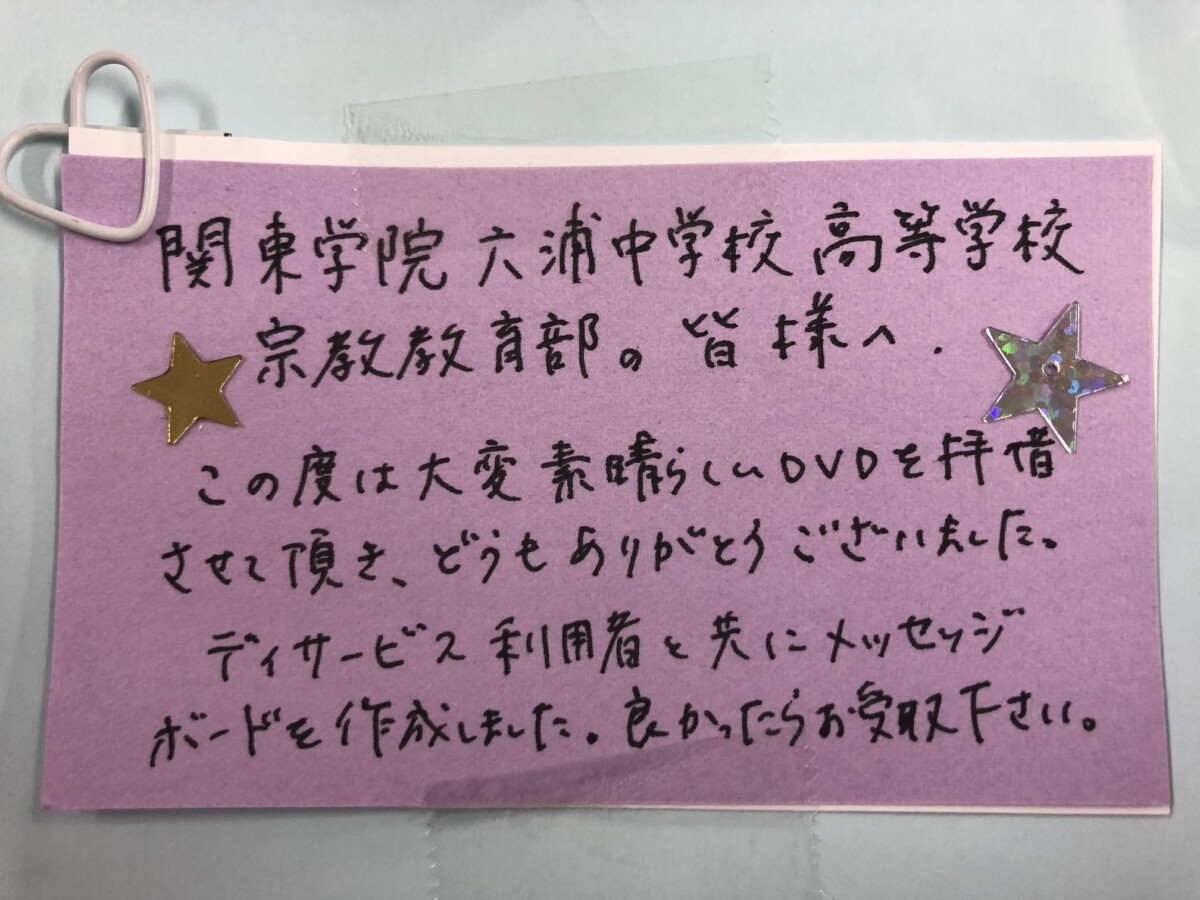 関東学院六浦中学校高等学校
宗教教育部の皆様へ.
この度は大変素晴らしいDVDを拝借
させて頂き、どうもありがとうございました。
ディサービス利用者と共にメッセージ
ボードを作成しました。良かったらお受取下さい。